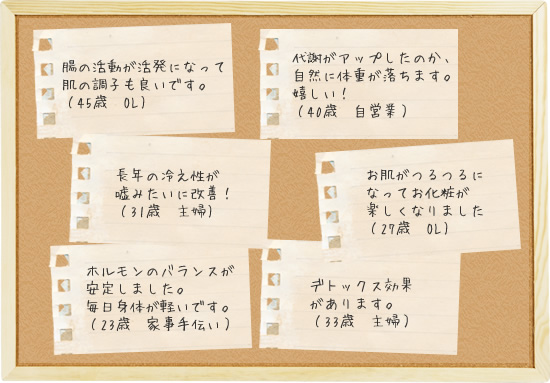 腸の活動が活発になって
肌の調子も良いです。
（45歳　OL）
代謝がアップしたのか、
自然に体重が落ちます。
嬉しい！
（40歳　自営業）
長年の冷え性が
嘘みたいに改善！
（31歳　主婦）
お肌がつるつるに
なってお化粧が
楽しくなりました
（27歳　OL）
ホルモンのバランスが
安定しました。
毎日身体が軽いです。
（23歳　家事手伝い）
デトックス効果
があります。
（33歳　主婦）